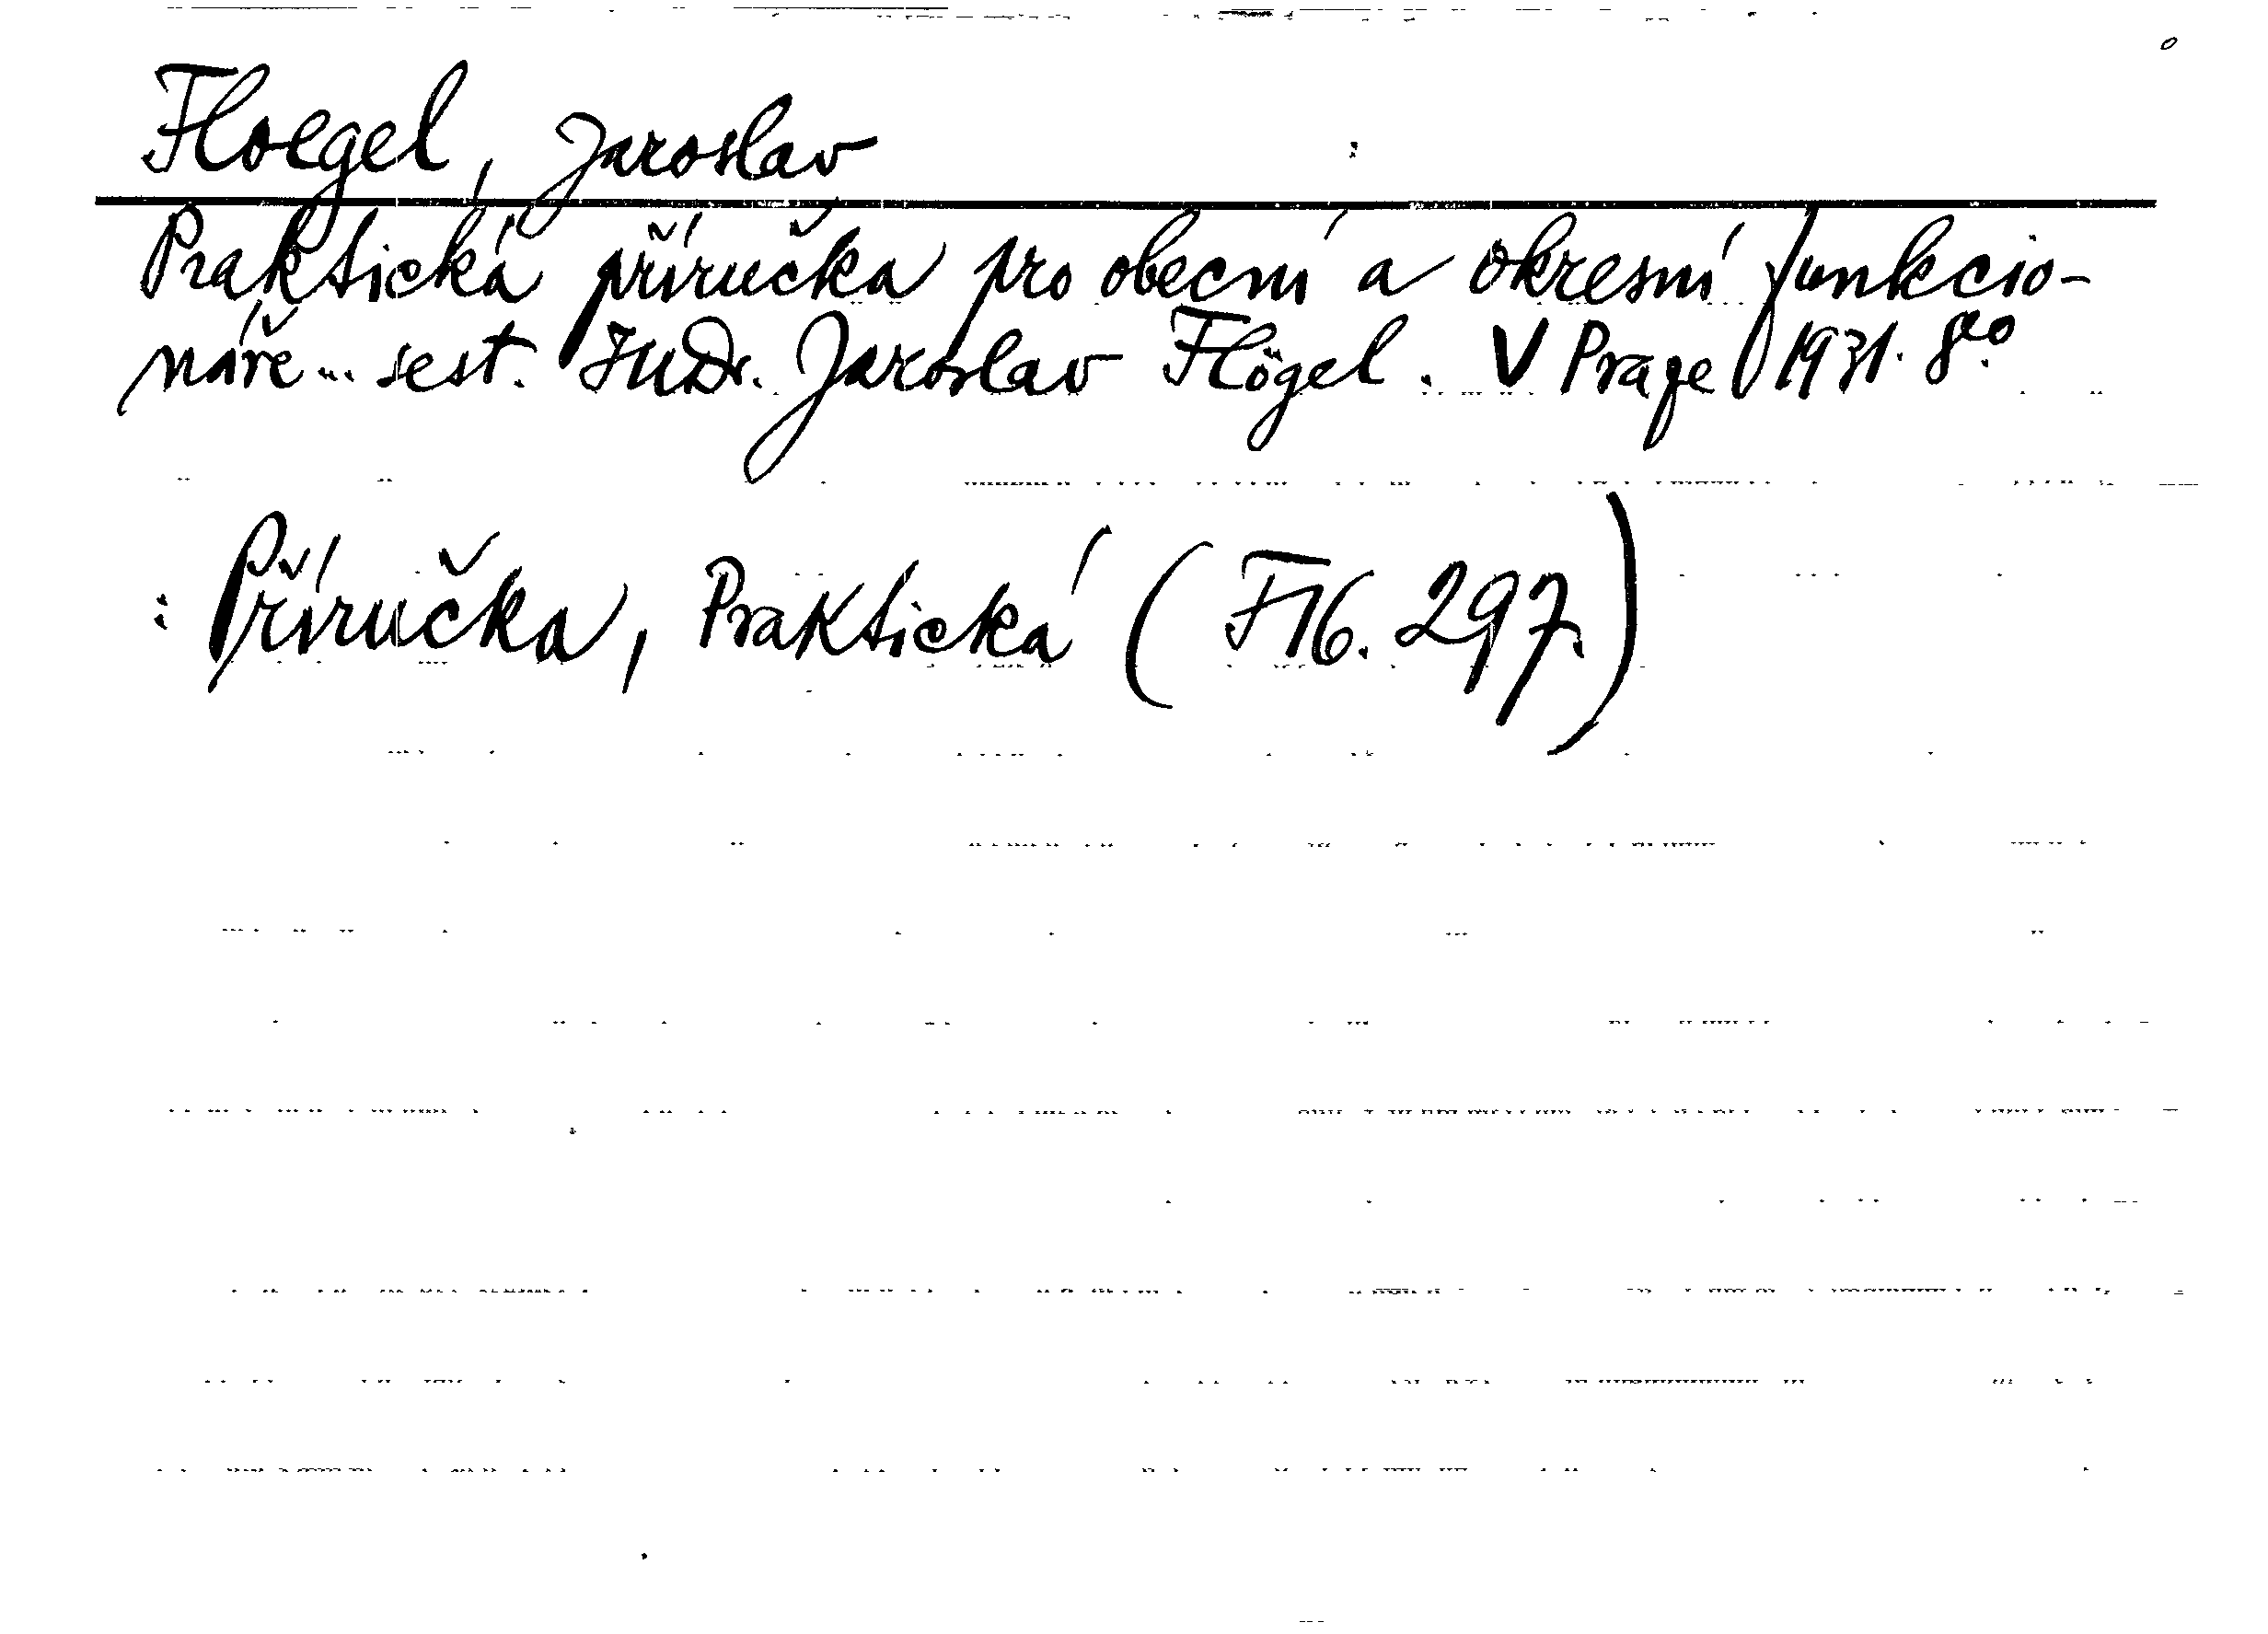 Floegel, Jaroslav
Praktická příručka pro obecní a okresní funkcio-
náře ... sest. JUDr. Jaroslav Flögel. V Praze 1931. 8º.
: Příručka, Praktická (F 16. 297.)